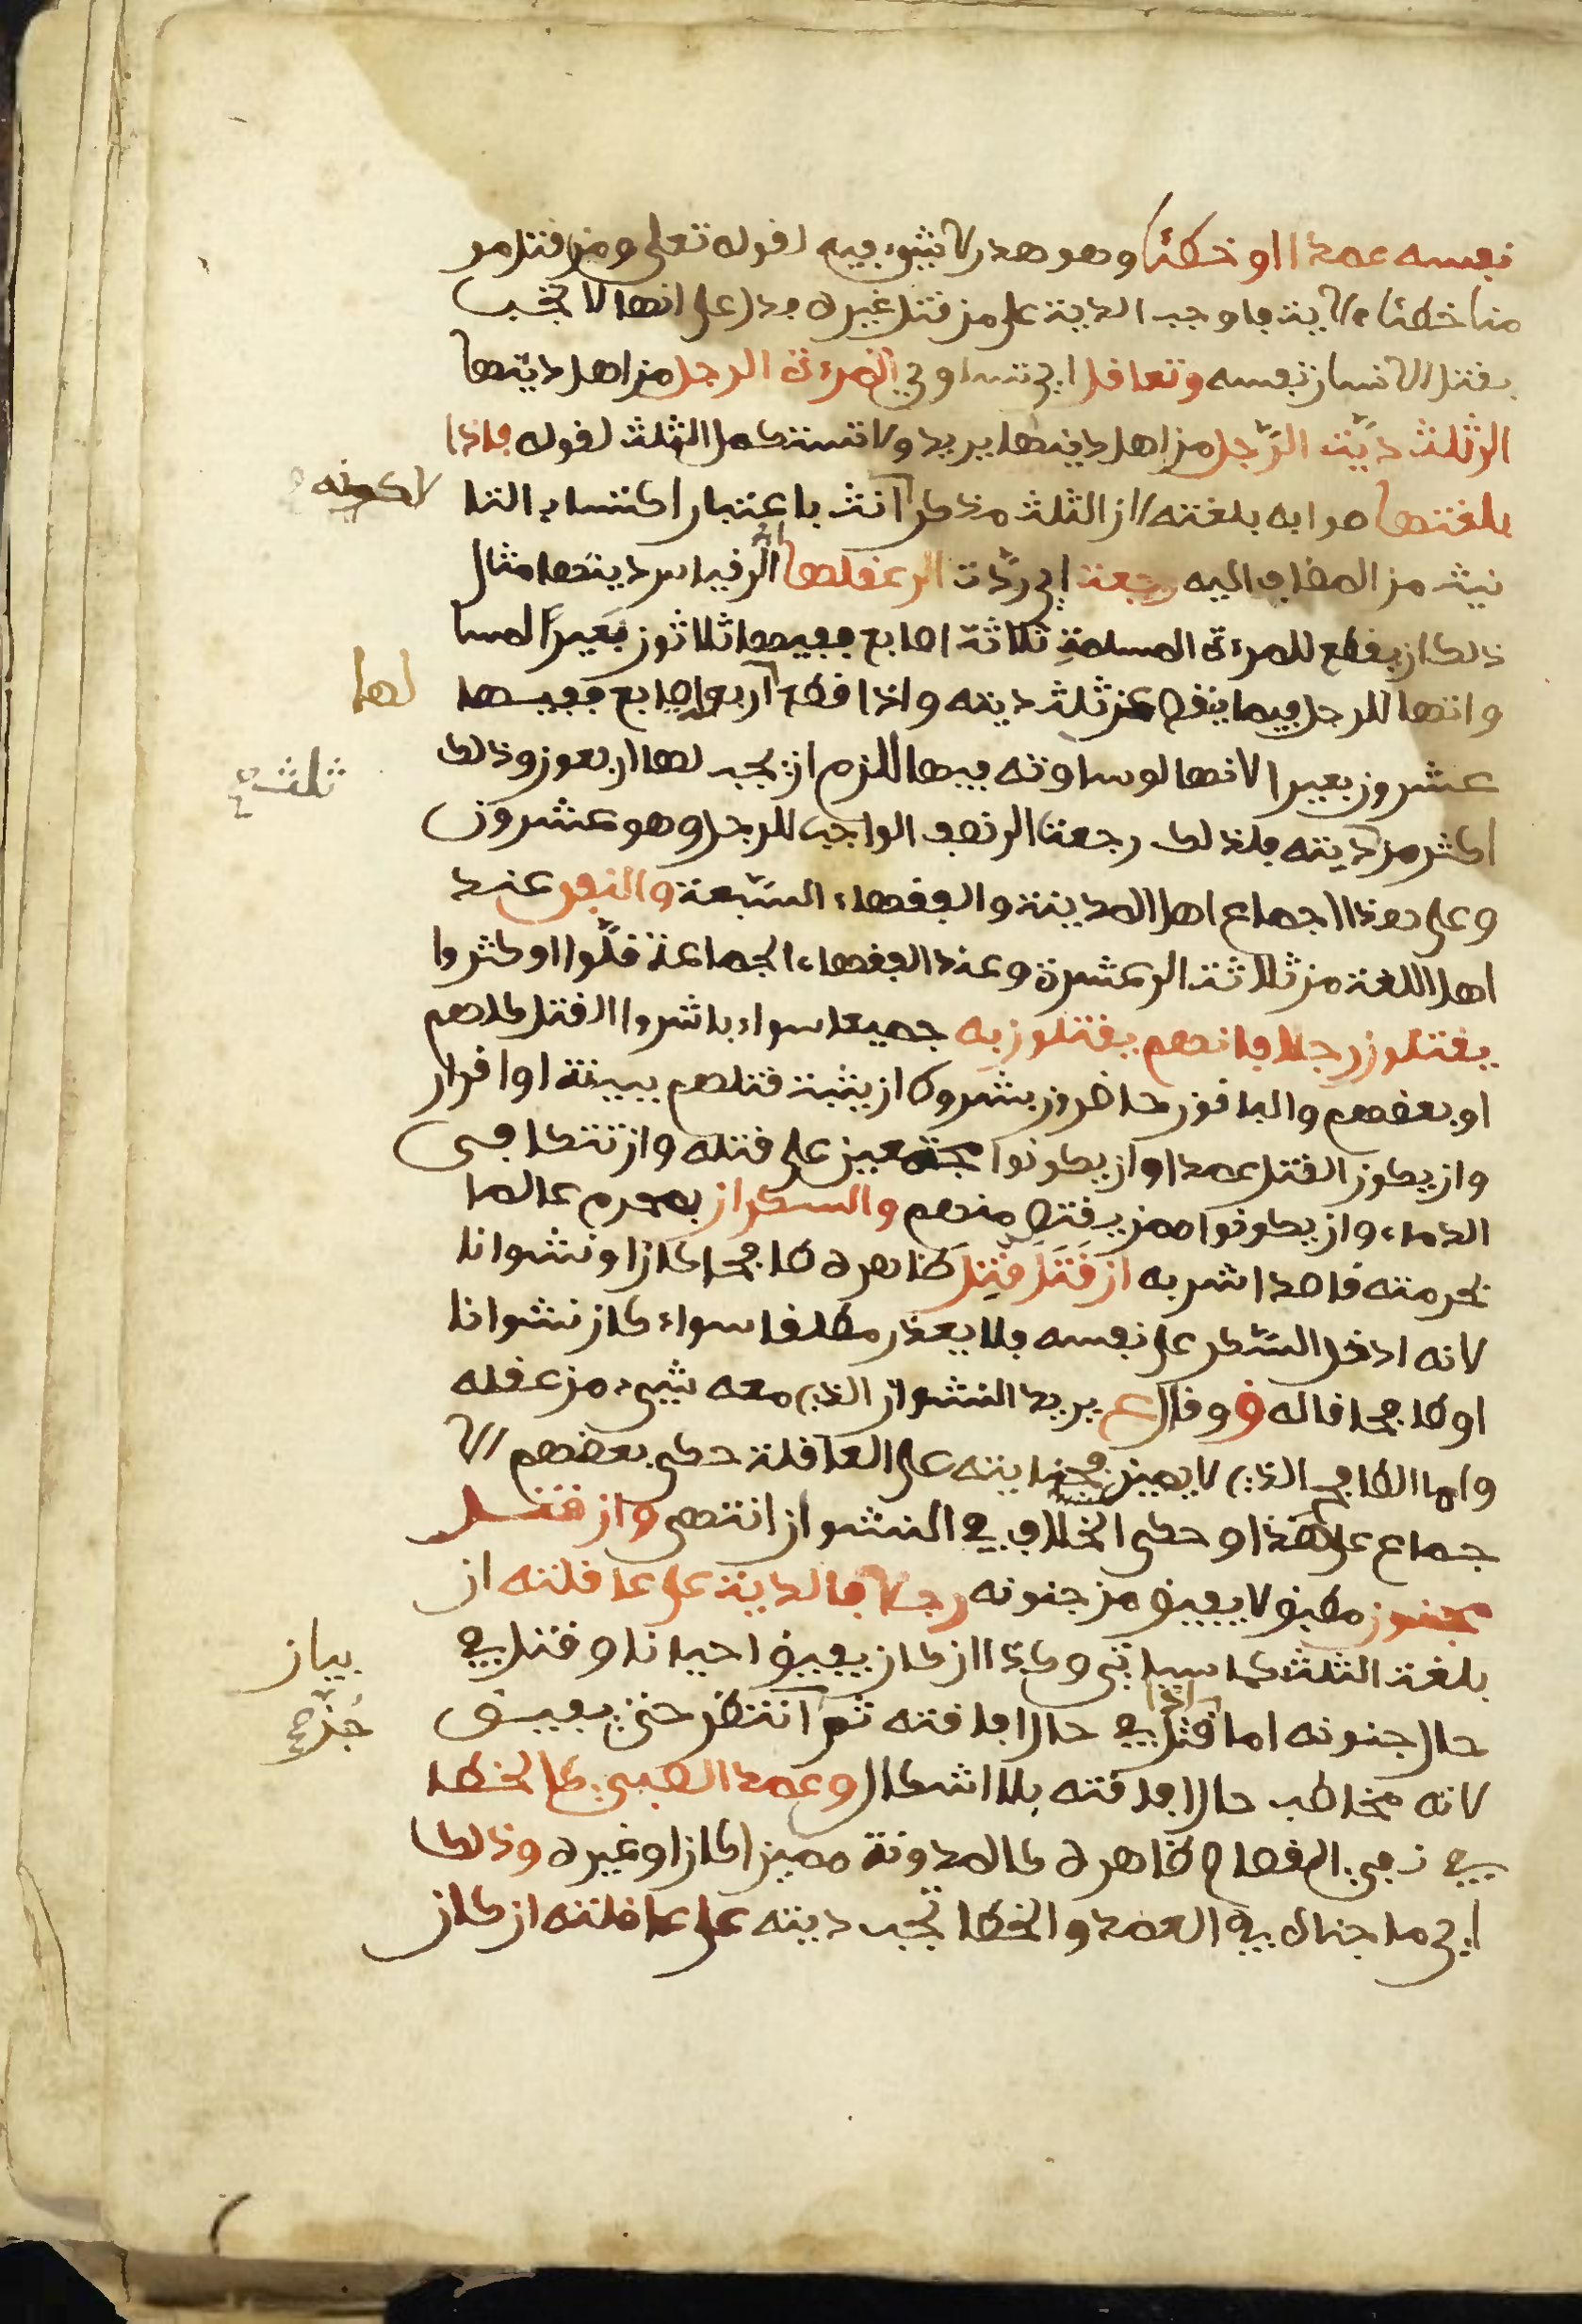 نفسه عمدا او خطئا وهو هدر لا شيء فيه لقوله تعلى ومن قتل مو
منا خطئا الاية فاوجب الدية على من قتل غيره فدل على انها لا تجب
بقتل الانسان نفسه وتعاقل اي تساوي المرءة الرجل من اهل ديتها
الى ثلث دية الرّجل من اهل دينها يريد ولا تستكمل الثلث لقوله فاذا
بلغتها صوابه بلغته لان الثلث مذكر آنث باعتبار اكتسابه التا
لاكونه
نيث من المضاف اليه رجعت اي ردّت الى عقلها اي الى قياس ديتها مثال
ذلك ان يقطع للمرءة المسلمةِ ثلاثة اصابع ففيها ثلاثون بعيراً لمسا
واتها للرجل فيما ينقص عن ثلث ديته واذا قطع آربع اصابع ففيها
لها
عشرون بعيرا لانها لو ساوته فيها للزم ان يجب لها اربعون وذلك
ثلث صح
اكثر من ديته فلذلك رجعت الى نصف الواجب للرجل وهو عشرون
وعلى هذا اجماع اهل المدينة والفقهاء السّبعة والنفر عند
اهل اللغة من ثلاثة الى عشرة وعند الفقهاء الجماعة قلّوا او كثروا
يقتلون رجلا فانهم يقتلون به جميعا سواء باشروا القتل كلهم
او بعضهم والباقون حاضرون بشروط ان يثبت قتلهم ببينة او اقرار
وان يكون القتل عمدا وان يكونوا مجتمعين على قتله وان تتكافى
الدماء وان يكونوا ممن يقتص منهم والسكران بمحرم عالما
بحرمته قاصدا شربه ان قَتَلَ قُتِل ظاهره طافحا كان او نشوانا
لانه ادخل السّكر على نفسه فلا يعذر مطلقا سواء كان نشوانا
او طافحا قاله ق وقال ع يريد النشوان الذي معه شيء من عقله
واما الطافح الذي لا يميز فجنايته على العاقلة حكى بعضهم الا
جماع على هذا وحكى الخلاف في النشوان انتهى وان قتل
مجنون مطبق لا يفيق من جنونه رجلا فالدية على عاقلته ان
بلغت الثلث كما سياتي وكذا ان كان يفيق احيانا وقتل في
بيان
حال جنونه اما اذا قتل في حال افاقته ثم آنتظر حتى يفيق
جُنّ صح
لانه مخاطب حال افاقته بلا اشكال وعمد الصبي كالخطا
في نفي القصاص ظاهره كالمدونة مميزا كان او غيره وذلك
اي ما جناه في العمد والخطا تجب ديته على عاقلته ان كان